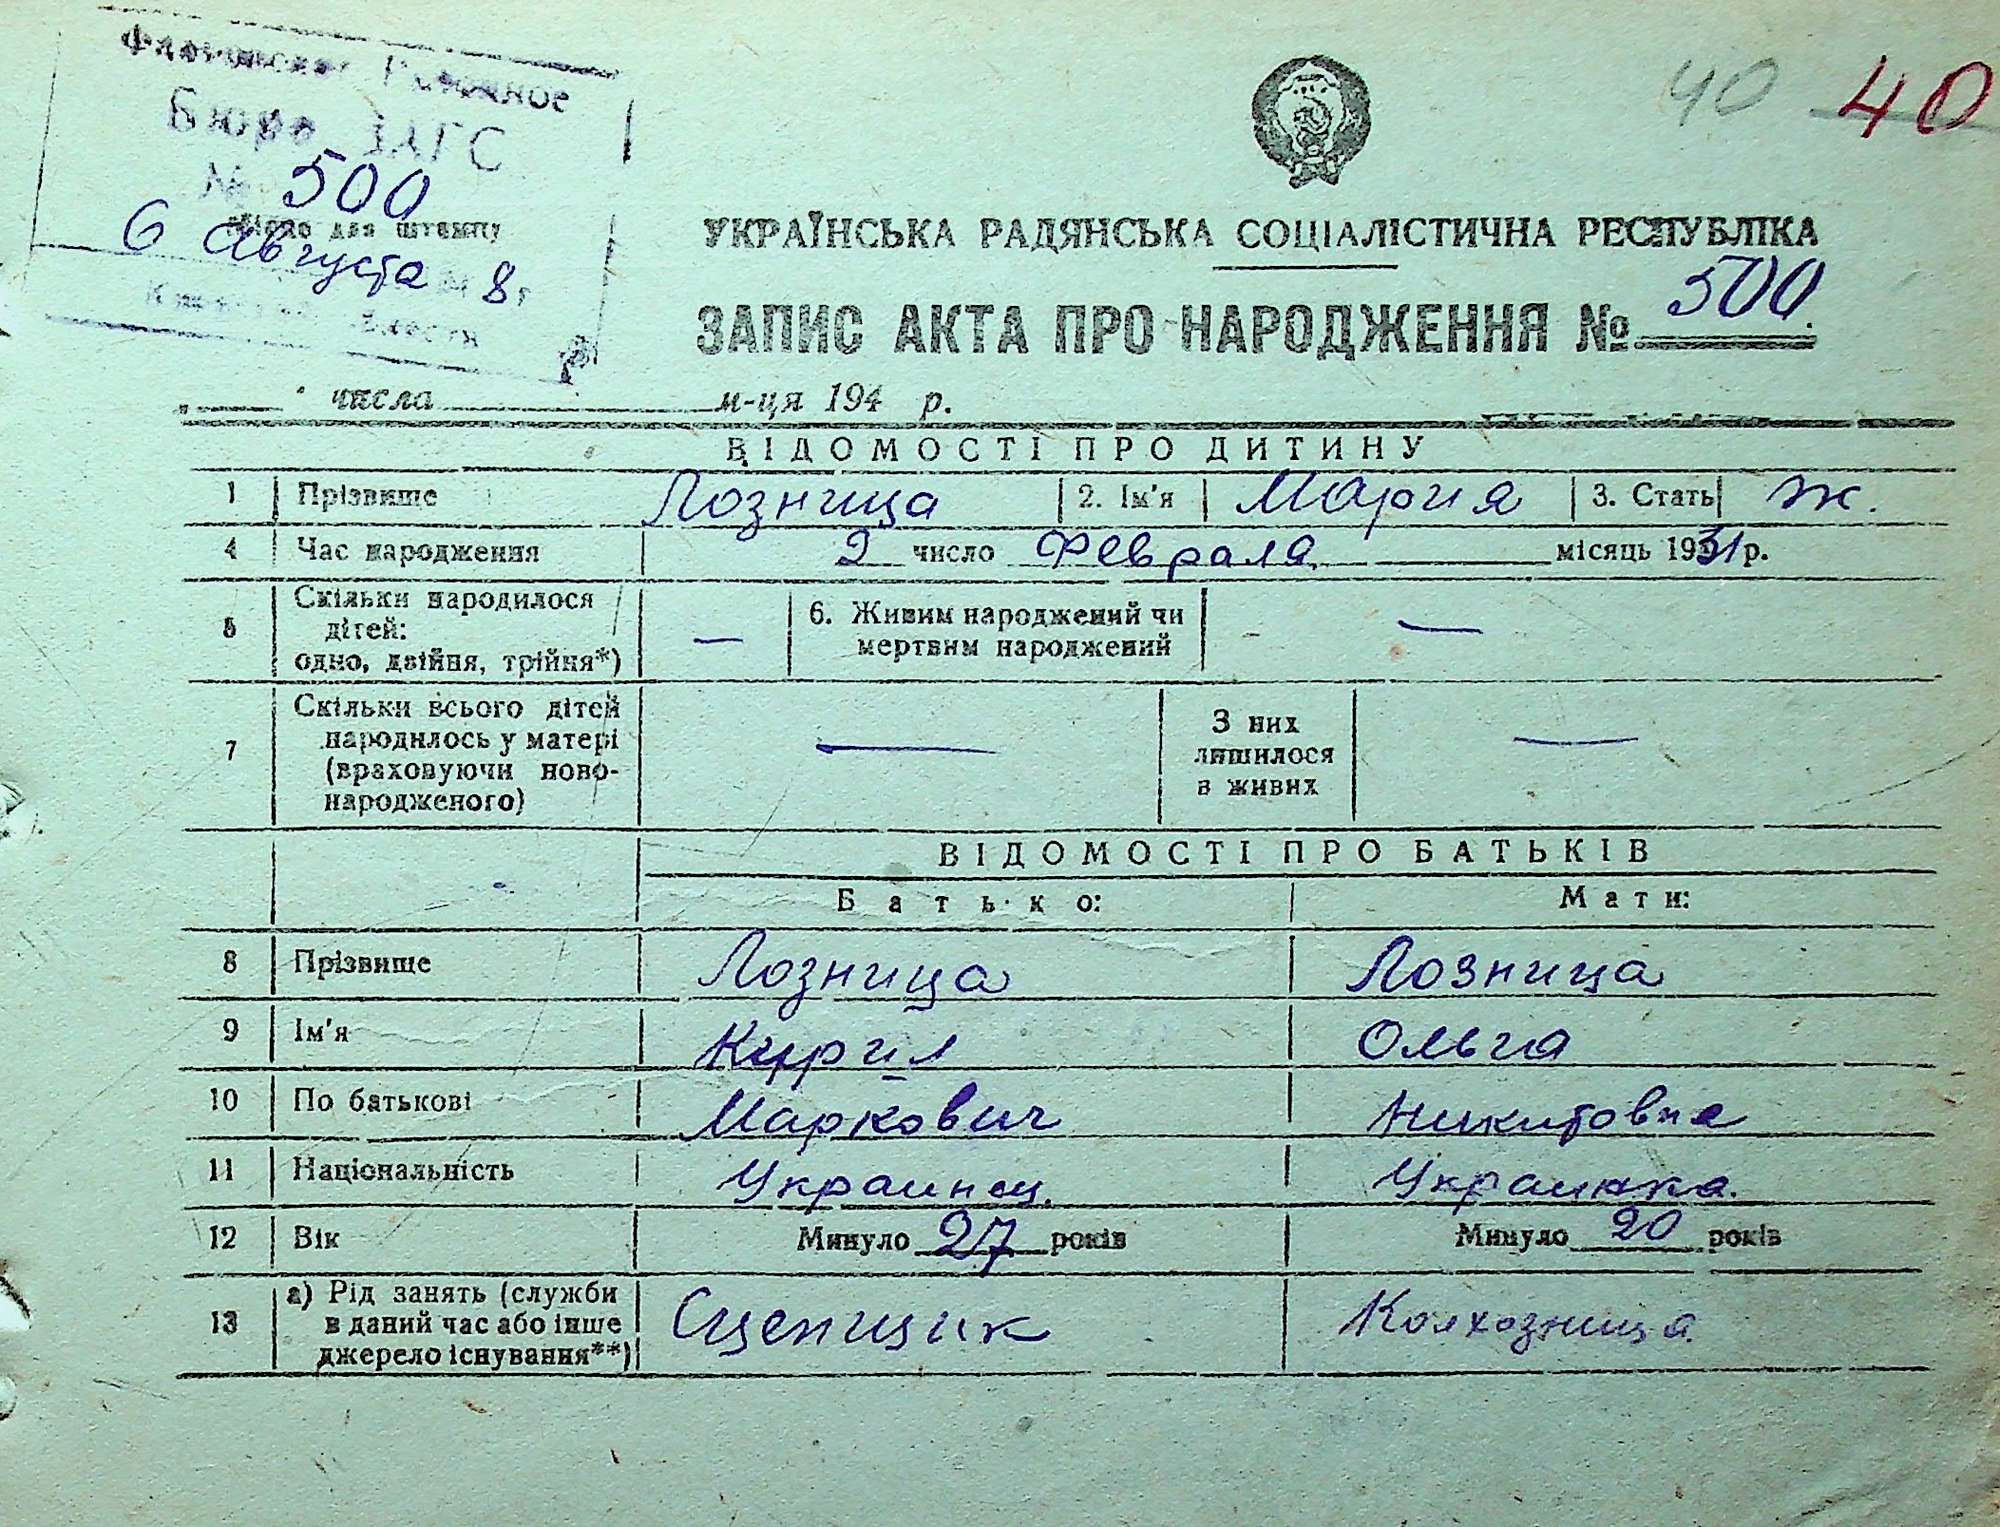 Бюро ЗАГС
№ 500
Місце для штампу
6 Августа 8
40 40
УКРАЇНСЬКА РАДЯНСЬКА СОЦІАЛІСТИЧНА РЕСПУБЛІКА
ЗАПИС АКТА ПРО НАРОДЖЕННЯ № 500
числа м-ця 194 р.
ВІДОМОСТІ ПРО ДИТИНУ
1 Прізвище Лозница 2. Ім'я Мария 3. Стать ж.
4 Час народження 2 число Февраля місяць 1931 р.
5 Скільки народилося дітей: одно, двійня, трійня*) — 6. Живим народжений чи мертвим народжений —
7 Скільки всього дітей народилось у матері (враховуючи ново-народженого) — З них лишилося в живих —
ВІДОМОСТІ ПРО БАТЬКІВ
Батько: Мати:
8 Прізвище Лозница Лозница
9 Ім'я Кирил Ольга
10 По батькові Маркович Никитовна
11 Національність Украинец. Украинка.
12 Вік Минуло 27 років Минуло 20 років
13 а) Рід занять (служби в даний час або інше джерело існування**) Сцепщик Колхозница.